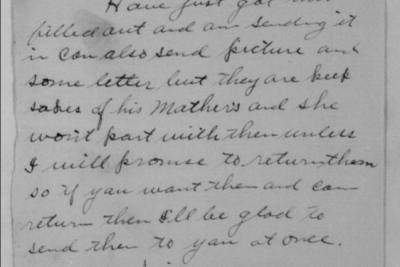 Have just got this
filled out and am sending it
in Can also send picture and
some letter but they are keep
sakes of his Mother's and she
won't part with then unless
I will promise to return them
so if yau want then and can
return then I'll be glad to
send then to yau at once.